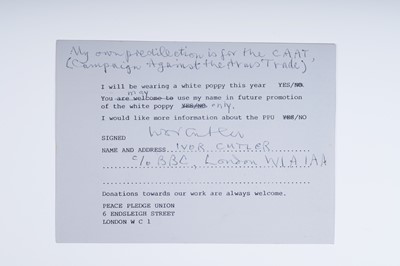 My own predilection is for the CAAT
(Campaign Against the Arms Trade)
I will be wearing a white poppy this year YES/NO.
may
You are welcome to use my name in future promotion
of the white poppy YES/NO only.
I would like more information about the PPU YES/NO
SIGNED Ivor Cutler
NAME AND ADDRESS IVOR CUTLER
c/o BBC, London W1A 1AA
Donations towards our work are always welcome.
PEACE PLEDGE UNION
6 ENDSLEIGH STREET
LONDON W C 1